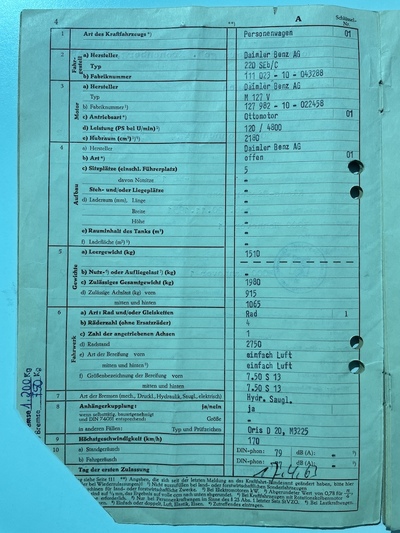 4
A
Schlüssel-Nr.
1 Art des Kraftfahrzeugs Personenwagen 01
2 Fahrgestell a) Hersteller Daimler Benz AG
Typ 220 SEb/C
b) Fabriknummer 111 023 - 10 - 043288
3 Motor a) Hersteller Daimler Benz AG
Typ M 127 V
b) Fabriknummer 127 982 - 10 - 022458
c) Antriebsart Ottomotor 01
d) Leistung (PS bei U/min) 120 / 4800
e) Hubraum (cm³) 2180
4 Aufbau a) Hersteller Daimler Benz AG
b) Art offen 01
c) Sitzplätze (einschl. Führerplatz) 5
davon Notsitze -
Steh- und/oder Liegeplätze -
d) Laderaum (mm), Länge -
Breite -
Höhe -
e) Rauminhalt des Tanks (m³) -
f) Ladefläche (m²) -
5 Gewichte a) Leergewicht (kg) 1510
b) Nutz- oder Aufliegelast (kg) -
c) Zulässiges Gesamtgewicht (kg) 1980
d) Zulässige Achslast (kg) vorn 915
mitten und hinten 1065
6 Fahrwerk a) Art: Rad und/oder Gleisketten Rad 1
b) Räderzahl (ohne Ersatzräder) 4
c) Zahl der angetriebenen Achsen 1
d) Radstand 2750
e) Art der Bereifung vorn einfach Luft
mitten und hinten einfach Luft
f) Größenbezeichnung der Bereifung vorn 7.50 S 13
mitten und hinten 7.50 S 13
7 Art der Bremsen (mech., Druckl., Hydraulik, Saugl., elektrisch) Hydr. Saugl.
8 Anhängerkupplung: ja/nein ja
Größe -
in anderen Fällen: Typ und Prüfzeichen Oris D 20, M3225
9 Höchstgeschwindigkeit (km/h) 170
10 a) Standgeräusch DIN-phon: 79 dB (A): -
b) Fahrgeräusch DIN-phon: 79 dB (A): -
Tag der ersten Zulassung